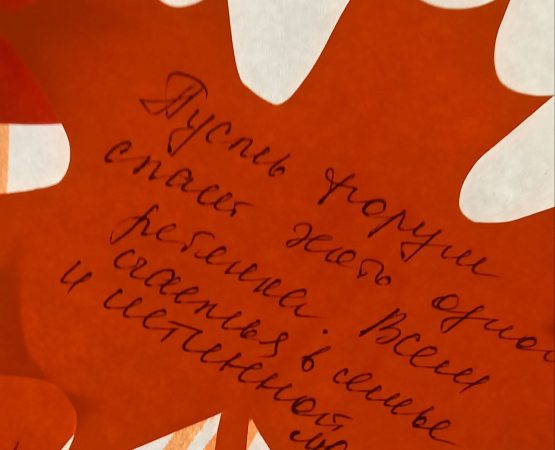 Пусть форум
спасет хоть одного
ребенка. Всем
счастья в семье
и истинной